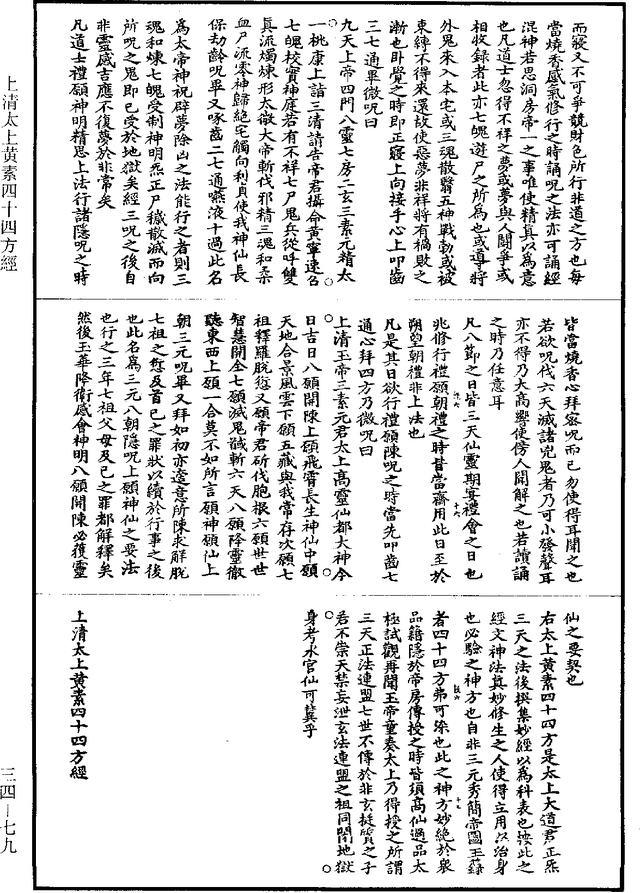 而寢又不可爭競財色所行非道之方也每
當燒香感氣修行之時誦呪之法亦可誦經
混神若思洞房帝一之事唯使精真以為意
也凡道士忽得不祥之夢或夢與人鬪爭或
相收錄者此亦七魄遊尸之所為也或導將
外鬼來入本宅或三魂散翳五神戰勃或被
束縛不得來還故使惡夢非祥將有禍敗之
漸也卧覺之時即正寢上向接手心上叩齒
三七通畢微呪曰
九天上帝四門八靈七房二玄三素元精太
一桃康上詣三清請告帝君攝命黃寧速召
七魄校實神庭若有不祥七尸鬼兵從呼雙
真流燭煉形太微大帝斬伐邪精三魂和柔
血尸流零神歸絕宅觸向利貞使我神仙長
保劫齡呪畢又啄齒二七通嚥液十過此名
為太帝神祝辟夢除凶之法能行之者則三
魂和煉七魄受制神明炁正尸穢散滅而向
所呪之鬼即已受於地獄矣經三呪之後自
非靈感吉應不復夢於非常矣
凡道士禮願神明精思上法行諸隱呪之時
皆當燒香心拜密呪而已勿使得耳聞之也
若欲呪伐六天滅諸兇鬼者乃可小發聲耳
亦不得乃大高響使傍人聞解之也若讀誦
之時乃任意耳
凡八節之日皆三天仙靈期宴禮會之日也
兆修行禮願朝禮之時皆當齋用此日至於
朔望朝禮非上法也
凡是其日欲行禮願陳呪之時當先叩齒七
通心拜四方乃微呪曰
上清玉帝三素元君太上高靈仙都大神今
日吉日八願開陳上願飛霄長生神仙中願
天地合景風雲下願五藏與我常存次願七
祖釋羅脫愆又願帝君斫伐胞根六願世世
智慧開全七願滅鬼馘斬六天八願降靈徹
聽東西上願一合莫不如所言願神願仙上
朝三元呪畢又拜如初亦適意所陳求解脫
七祖之愆及首己之罪狀以續於行事之後
也此名為三元八朝隱呪上願神仙之要法
也行之三年七祖父母及己之罪都解釋矣
然後玉華降衛感會神明八願開陳必獲靈
仙之要契也
右太上黃素四十四方是太上大道君正炁
三天之法後撰集妙經以為科表也損此之
經文神法真妙修生之人使得立用以治身
也必驗之神方也自非三元秀簡帝圖玉籙
者四十四方弗可染也此之神方妙絕於眾
品籍隱於帝房傳授之時皆須高仙過品太
極試觀再聞玉帝童奏太上乃得授之所謂
三天正法連盟七世不傳於非玄挺質之子
若不崇天禁妄泄玄法連盟之祖同閉地獄
身考水官仙可冀乎
上清太上黃素四十四方經
上清太上黃素四十四方經
三四－七九